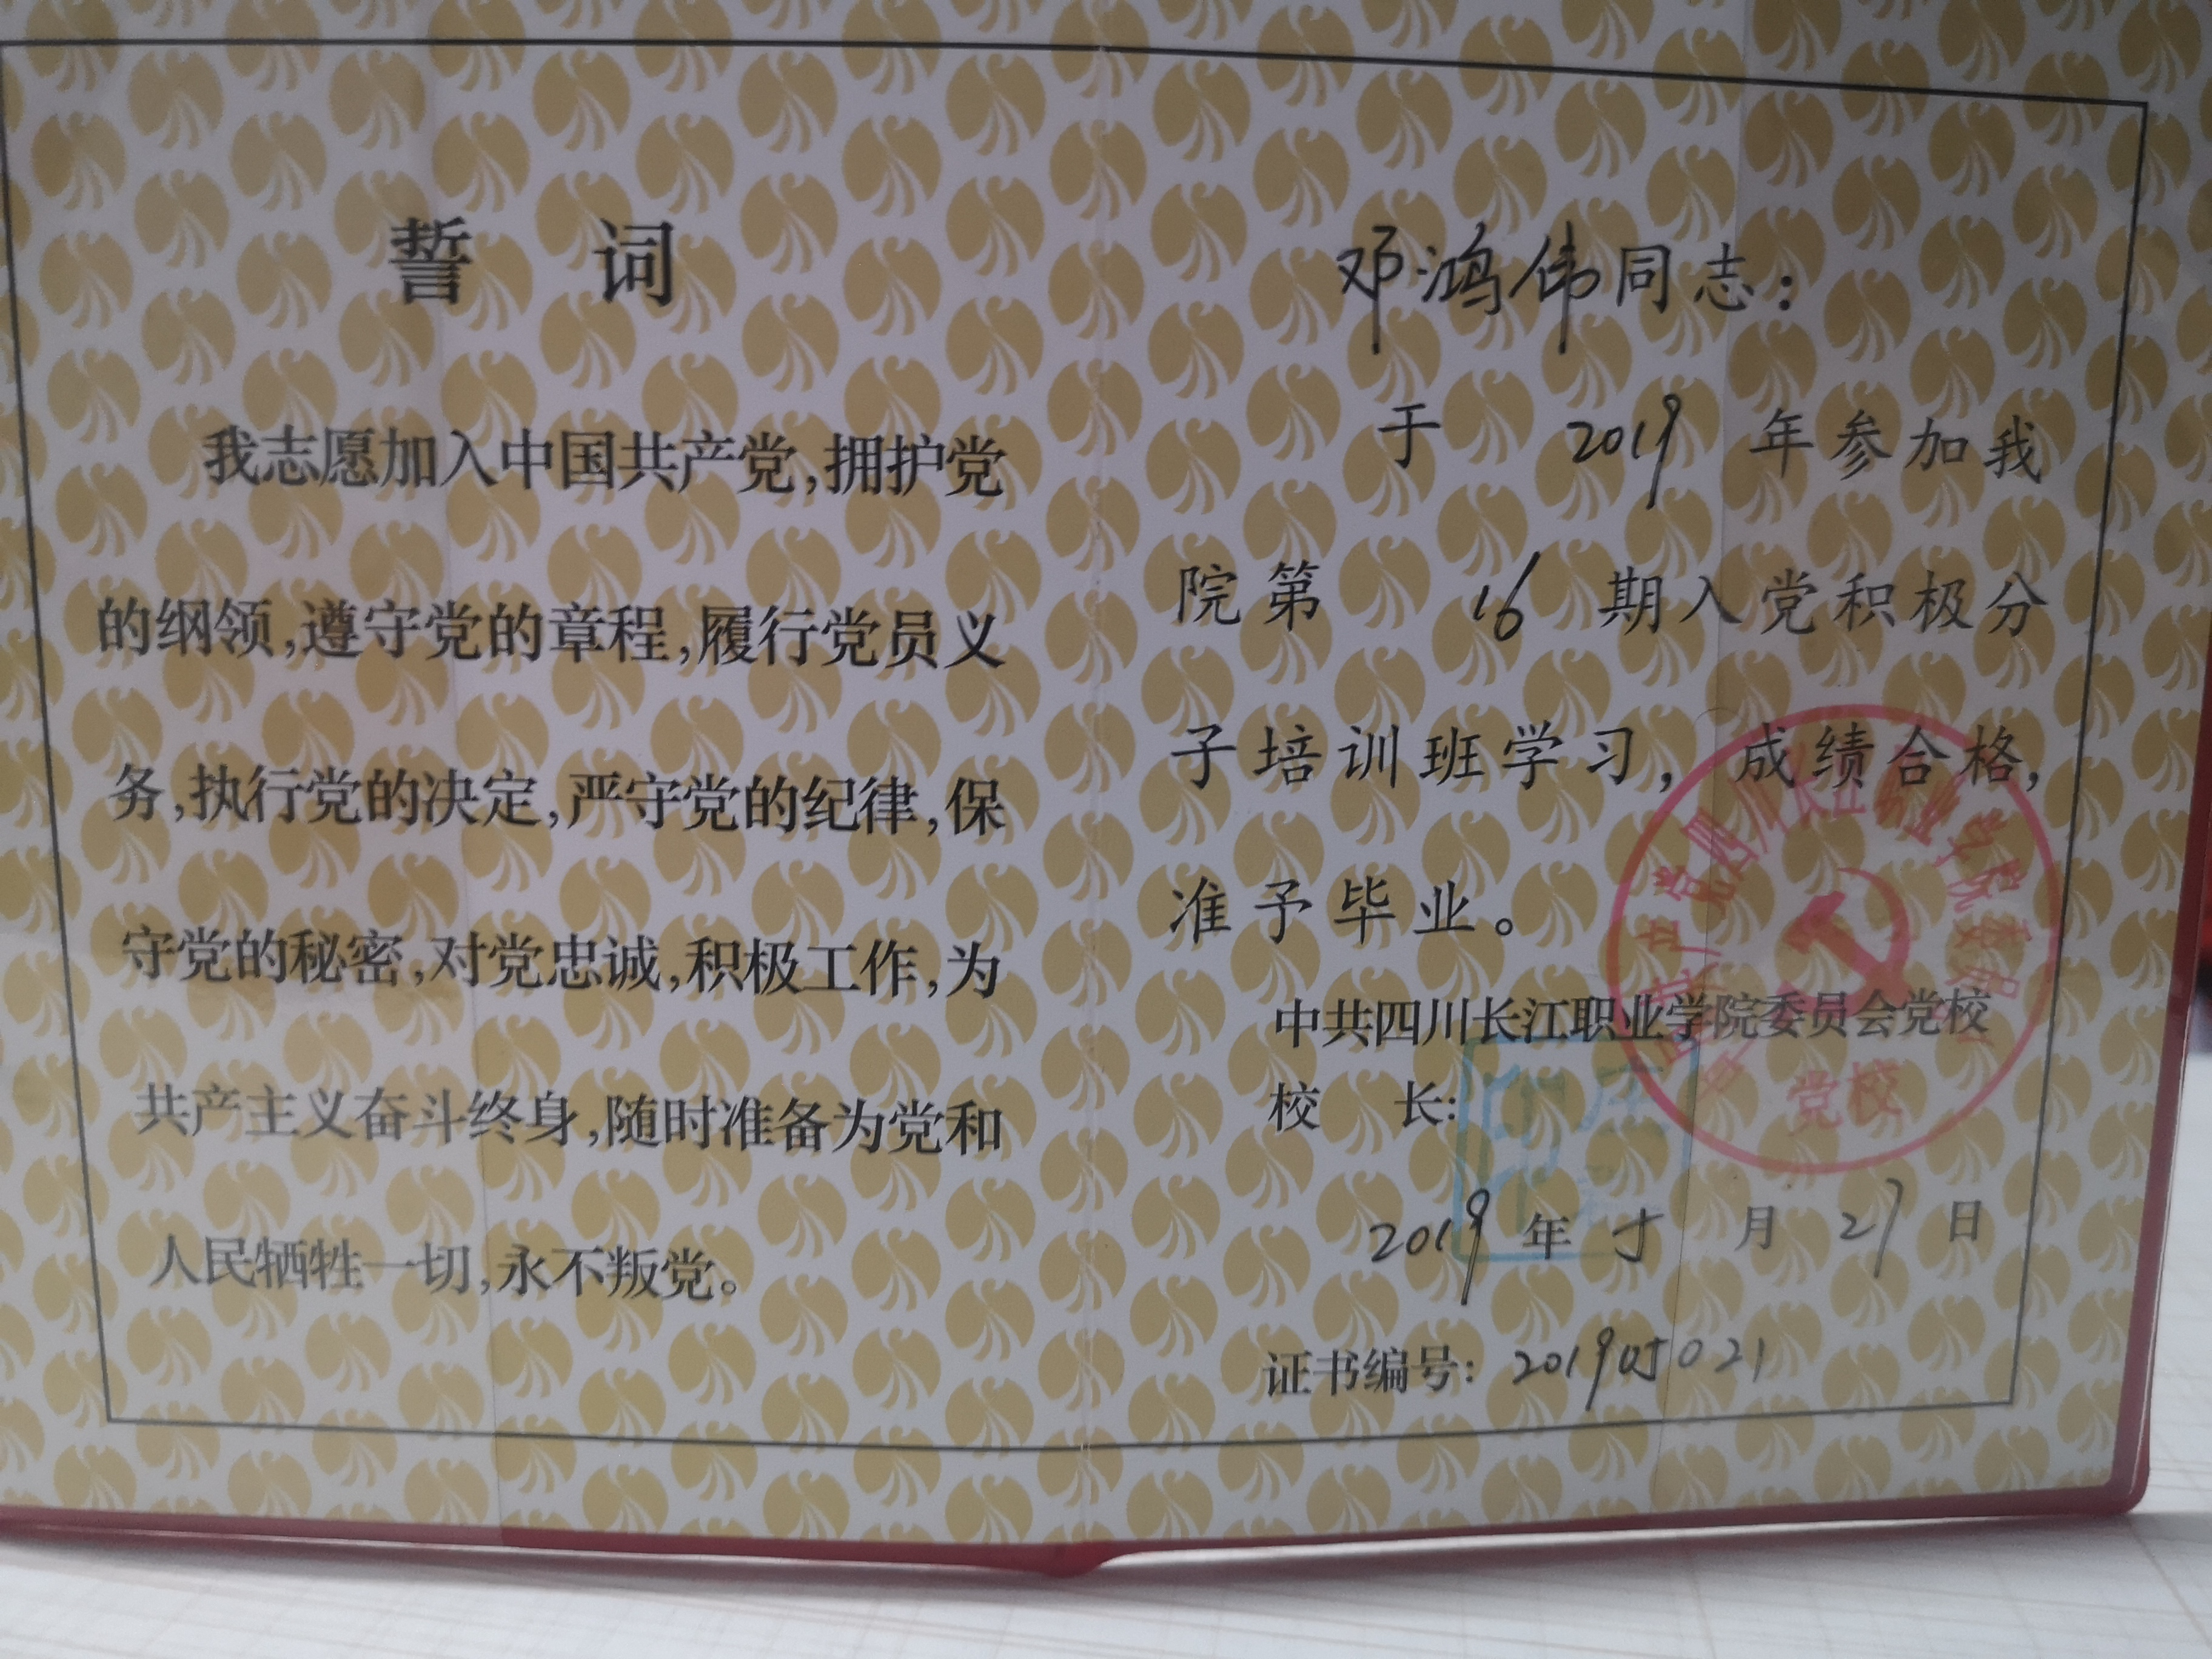 誓 词
我志愿加入中国共产党,拥护党
的纲领,遵守党的章程,履行党员义
务,执行党的决定,严守党的纪律,保
守党的秘密,对党忠诚,积极工作,为
共产主义奋斗终身,随时准备为党和
人民牺牲一切,永不叛党。
邓鸿伟同志:
于 2019 年参加我
院第 16 期入党积极分
子培训班学习,成绩合格,
准予毕业。
中共四川长江职业学院委员会党校
校 长:
2019 年 5 月 27 日
证书编号: 201905021
党校